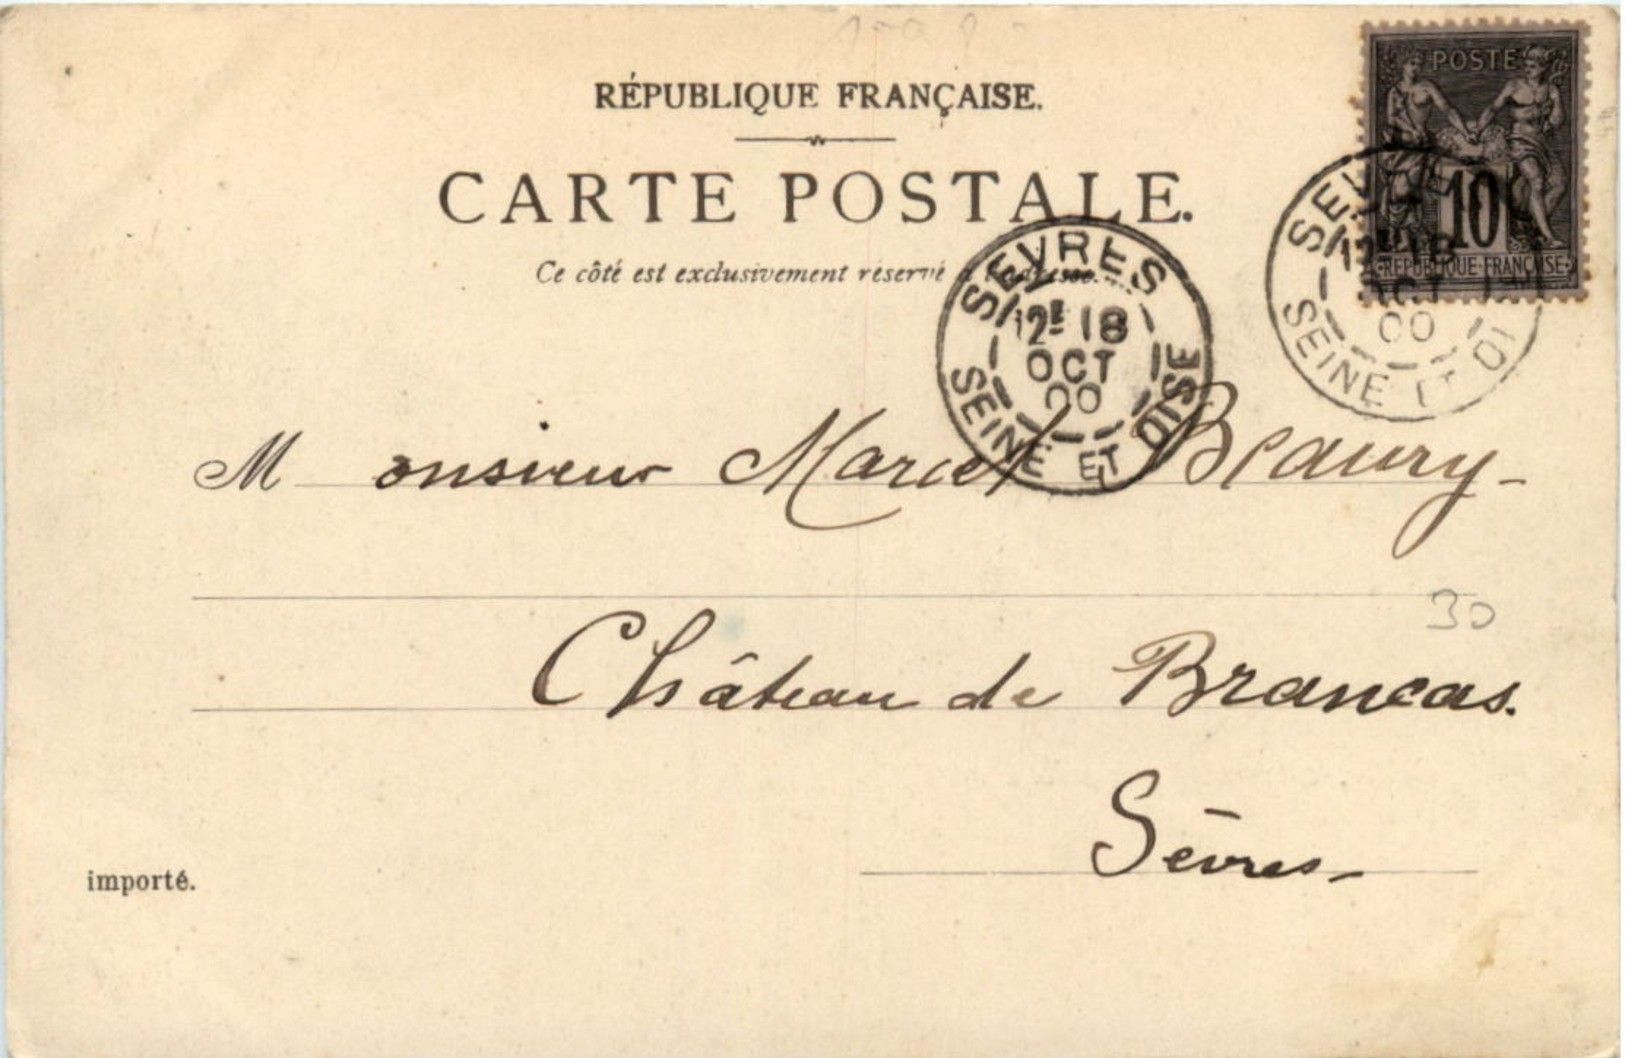 RÉPUBLIQUE FRANÇAISE.
POSTE
10
RÉPUBLIQUE FRANÇAISE
CARTE POSTALE.
Ce côté est exclusivement réservé à l'adresse.
SEVRES
12E 18
OCT
00
SEINE ET OISE
SEVRES
12E 18
OCT
00
SEINE ET OI
Monsieur Marcel Beaury-
30
Château de Brancas.
Sèvres-
importé.